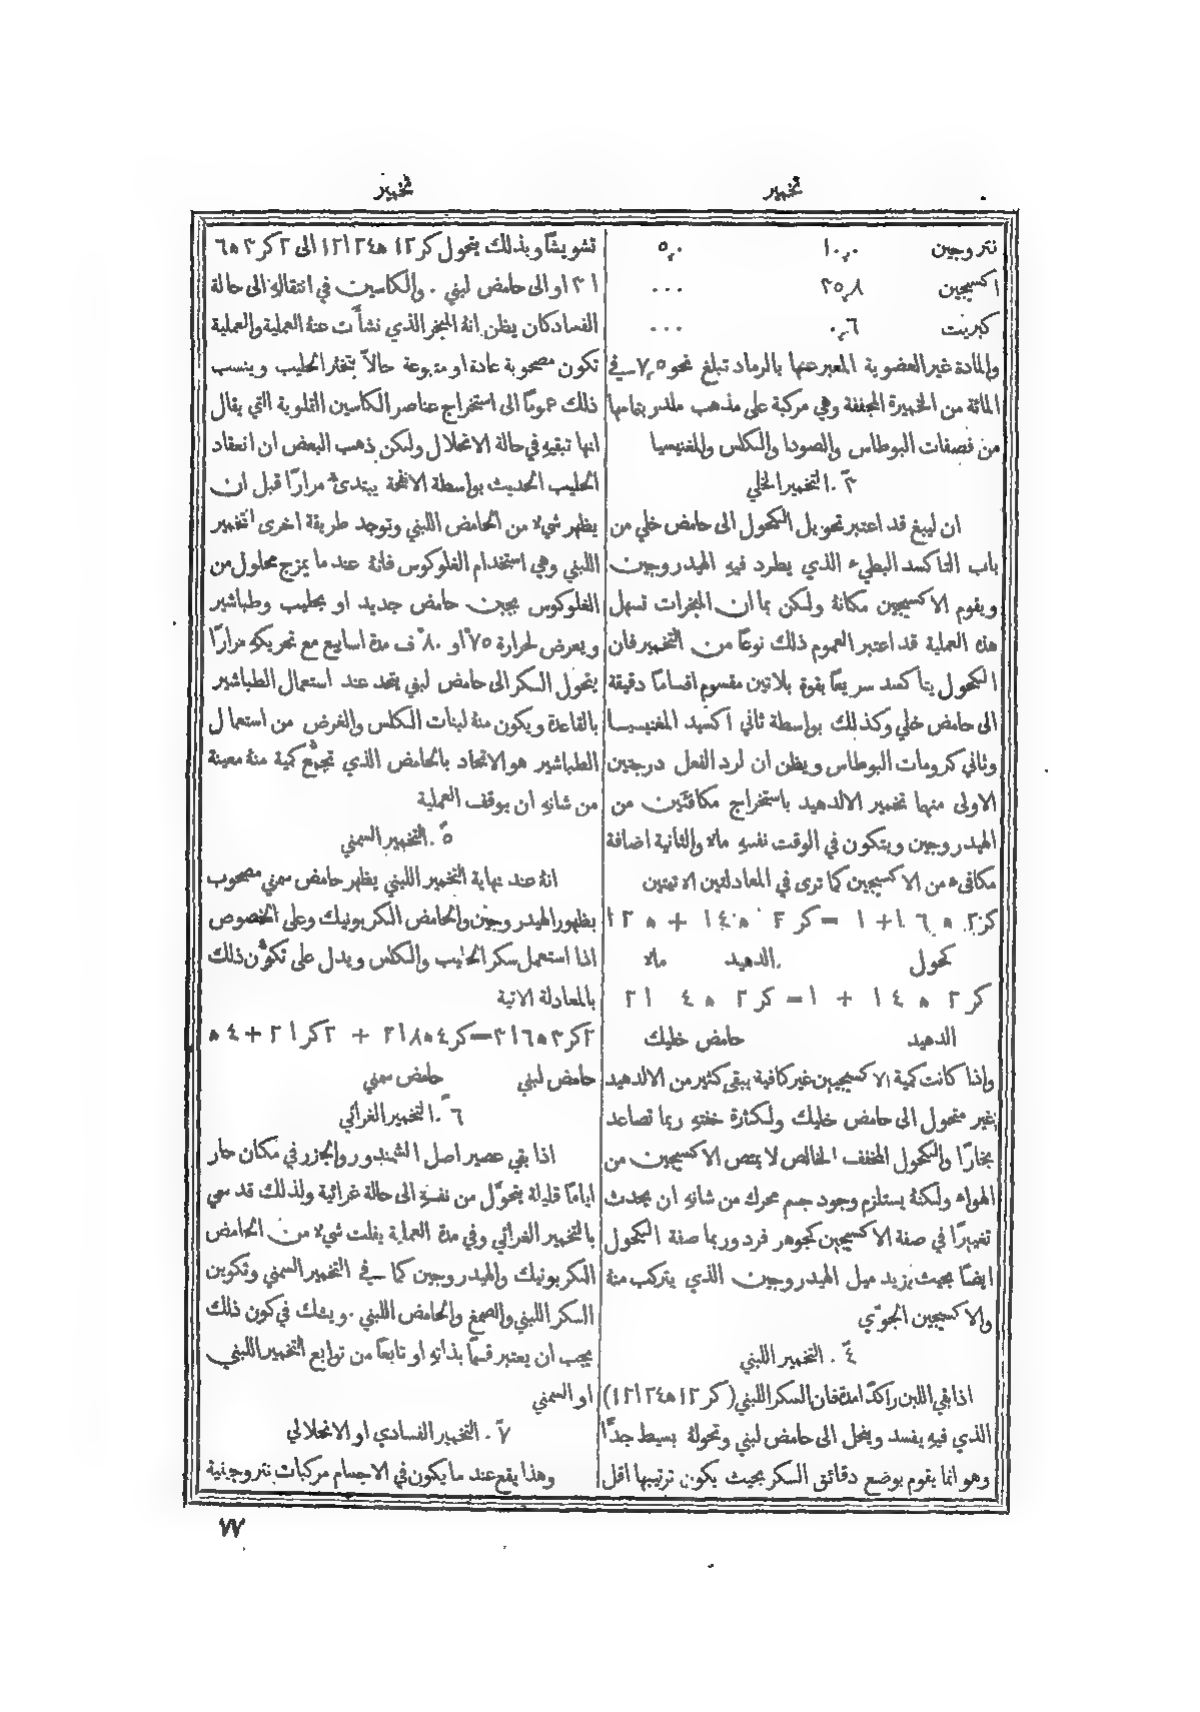 تخمير
تخمير
نتروجين ١٠,٠ ٥,٠
اكسيجين ٣٥,٨ ...
كبريت ٠,٦ ...
والمادة غير العضوية المعبر عنها بالرماد تبلغ نحو ٧,٥ في
المائة من الخميرة المجففة وهي مركبة على مذهب ملدر بتمامها
من فصفات البوطاس والصودا والكلس والمغنيسيا
٣ً. التخمير الخلي
ان ليبغ قد اعتبر تحويل الكحول الى حامض خلي من
باب التاكسد البطيء الذي يطرد فيهِ الهيدروجين
ويقوم الاكسيجين مكانهُ ولكن بما ان المخمرات تسهل
هذه العملية قد اعتبر العموم ذلك نوعًا من التخمير فان
الكحول يتاكسد سريعًا بقوة بلاتين مقسوم اقسامًا دقيقة
الى حامض خلي وكذلك بواسطة ثاني اكسيد المغنيسيا
وثاني كرومات البوطاس ويظن ان لرد الفعل درجتين
الاولى منها تخمير الالدهيد باستخراج مكافئتين من
الهيدروجين ويتكون في الوقت نفسهِ ماء والثانية اضافة
مكافىء من الاكسيجين كما ترى في المعادلتين الاتيتين
كر٢ ه٦ ا + ا = كر٢ ه٤ ا + ه٢ ا
كحول الدهيد ماء
كر٢ ه٤ ا + ا = كر٢ ه٤ ا٢
الدهيد حامض خليك
واذا كانت كمية الاكسيجين غير كافية يبقى كثير من الالدهيد
غير متحول الى حامض خليك ولكثارة خفتهِ ربما تصاعد
بخارًا والكحول المخفف الخالص لا يمتص الاكسيجين من
الهواء ولكنهُ يستلزم وجود جسم محرك من شانهِ ان يحدث
تغييرًا في صفة الاكسيجين كجوهر فرد وربما صفة الكحول
ايضًا بحيث يزيد ميل الهيدروجين الذي يتركب منهُ
والاكسيجين الجوّي
٤ً. التخمير اللبني
اذا بقي اللبن راكدًا مدة فان السكر اللبني (كر١٢ه٢٤ا١٢)
الذي فيهِ يفسد وينحل الى حامض لبني وتحولهُ بسيط جدًّا
وهو انما يقوم بوضع دقائق السكر بحيث يكون ترتيبها اقل
تشويشًا وبذلك يتحول كر١٢ ه٢٤ ا١٢ الى ٢ كر٣ ه٦
ا٣ او الى حامض لبني. والكاسين في انتقالهِ الى حالة
الفساد كان يظن انهُ المخمر الذي نشأَت عنهُ العملية والعملية
تكون مصحوبة عادة او متبوعة حالًا بتخثر الحليب وينسب
ذلك عمومًا الى استخراج عناصر الكاسين القلوية التي يقال
انها تبقيهِ في حالة الانحلال ولكن ذهب البعض ان انعقاد
الحليب الحديث بواسطة الانفحة يبتدىء مرارًا قبل ان
يظهر شيء من الحامض اللبني وتوجد طريقة اخرى لتخمير
اللبني وهي استخدام الغلوكوس فانهُ عند ما يمزج محلول من
الغلوكوس بجبن حامض جديد او بحليب وطباشير
ويعرض لحرارة ٧٥ْ او ٨٠ْ ف مدة اسابيع مع تحريكهِ مرارًا
يتحول السكر الى حامض لبني يتحد عند استعمال الطباشير
بالقاعدة ويكون منهُ لبنات الكلس والغرض من استعمال
الطباشير هو الاتحاد بالحامض الذي تجمُّع كمية منهُ معينة
من شانهِ ان يوقف العملية
٥ً. التخمير السمني
انهُ عند نهاية التخمير اللبني يظهر حامض سمني مصحوب
بظهور الهيدروجين والحامض الكربونيك وعلى الخصوص
اذا استعمل سكر الحليب والكلس ويدل على تكوُّن ذلك
بالمعادلة الاتية
٢كر٣ه٦ا٣ = كر٤ه٨ا٢ + ٢كرا٢ + ٤ه
حامض لبني حامض سمني
٦ً. التخمير الغرائي
اذا بقي عصير اصل الشمندور والجزر في مكان حار
ايامًا قليلة يتحوَّل من نفسهِ الى حالة غرائية ولذلك قد سمي
بالتخمير الغرائي وفي مدة العملية يفلت شيء من الحامض
الكربونيك والهيدروجين كما في التخمير السمني وتكوين
السكر اللبني والصمغ والحامض اللبني. ويشك في كون ذلك
يجب ان يعتبر قسمًا بذاتهِ او تابعًا من توابع التخمير اللبني
او السمني
٧ً. التخمير الفسادي او الانحلالي
وهذا يقع عند ما يكون في الاجسام مركبات نتروجينية
٧٧